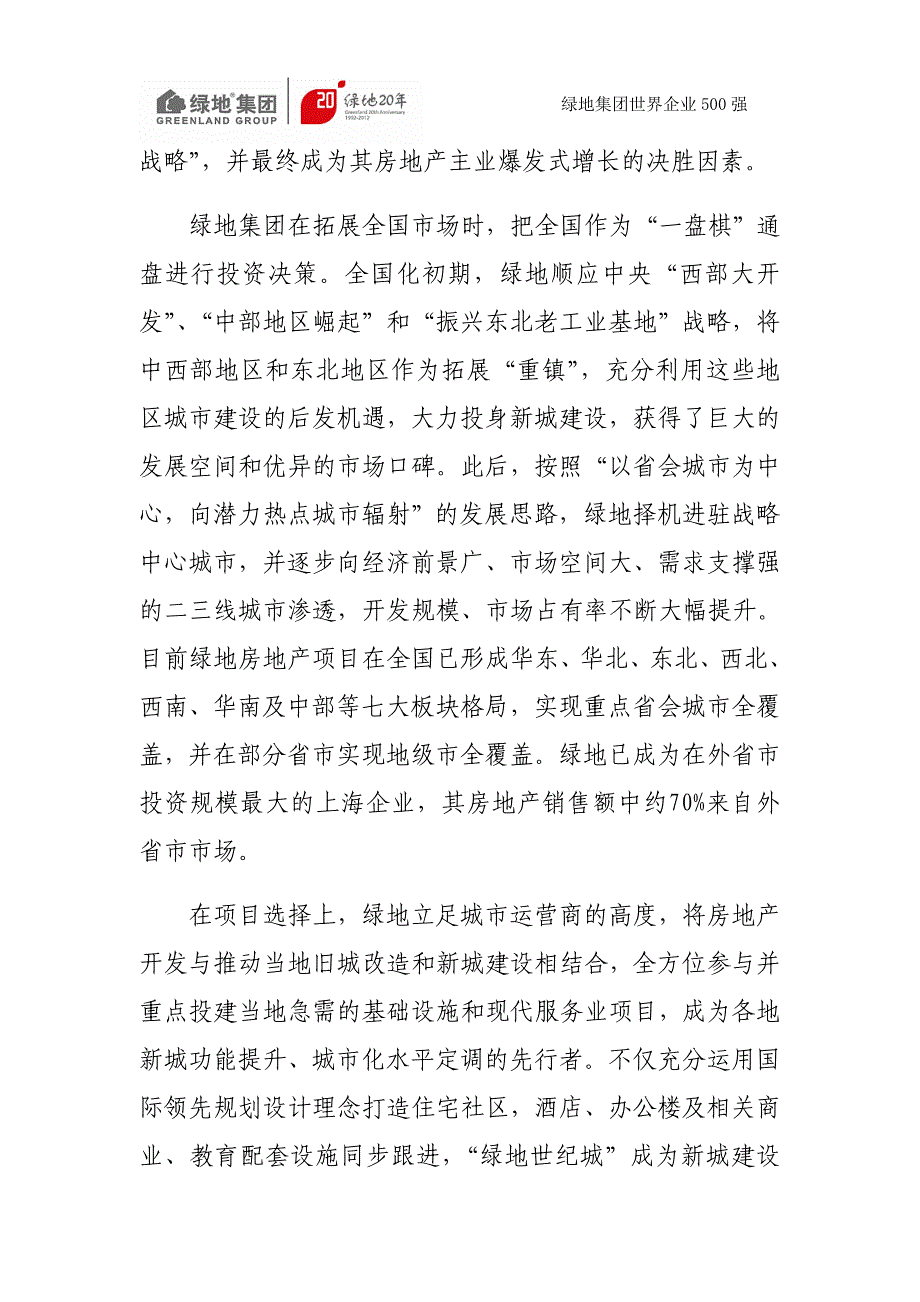 绿地®集团
GREENLAND GROUP
20 绿地20年
Greenland 20th Anniversary
1992-2012
绿地集团世界企业 500 强
战略”，并最终成为其房地产主业爆发式增长的决胜因素。
绿地集团在拓展全国市场时，把全国作为“一盘棋”通
盘进行投资决策。全国化初期，绿地顺应中央“西部大开
发”、“中部地区崛起”和“振兴东北老工业基地”战略，将
中西部地区和东北地区作为拓展“重镇”，充分利用这些地
区城市建设的后发机遇，大力投身新城建设，获得了巨大的
发展空间和优异的市场口碑。此后，按照“以省会城市为中
心，向潜力热点城市辐射”的发展思路，绿地择机进驻战略
中心城市，并逐步向经济前景广、市场空间大、需求支撑强
的二三线城市渗透，开发规模、市场占有率不断大幅提升。
目前绿地房地产项目在全国已形成华东、华北、东北、西北、
西南、华南及中部等七大板块格局，实现重点省会城市全覆
盖，并在部分省市实现地级市全覆盖。绿地已成为在外省市
投资规模最大的上海企业，其房地产销售额中约70%来自外
省市市场。
在项目选择上，绿地立足城市运营商的高度，将房地产
开发与推动当地旧城改造和新城建设相结合，全方位参与并
重点投建当地急需的基础设施和现代服务业项目，成为各地
新城功能提升、城市化水平定调的先行者。不仅充分运用国
际领先规划设计理念打造住宅社区，酒店、办公楼及相关商
业、教育配套设施同步跟进，“绿地世纪城”成为新城建设